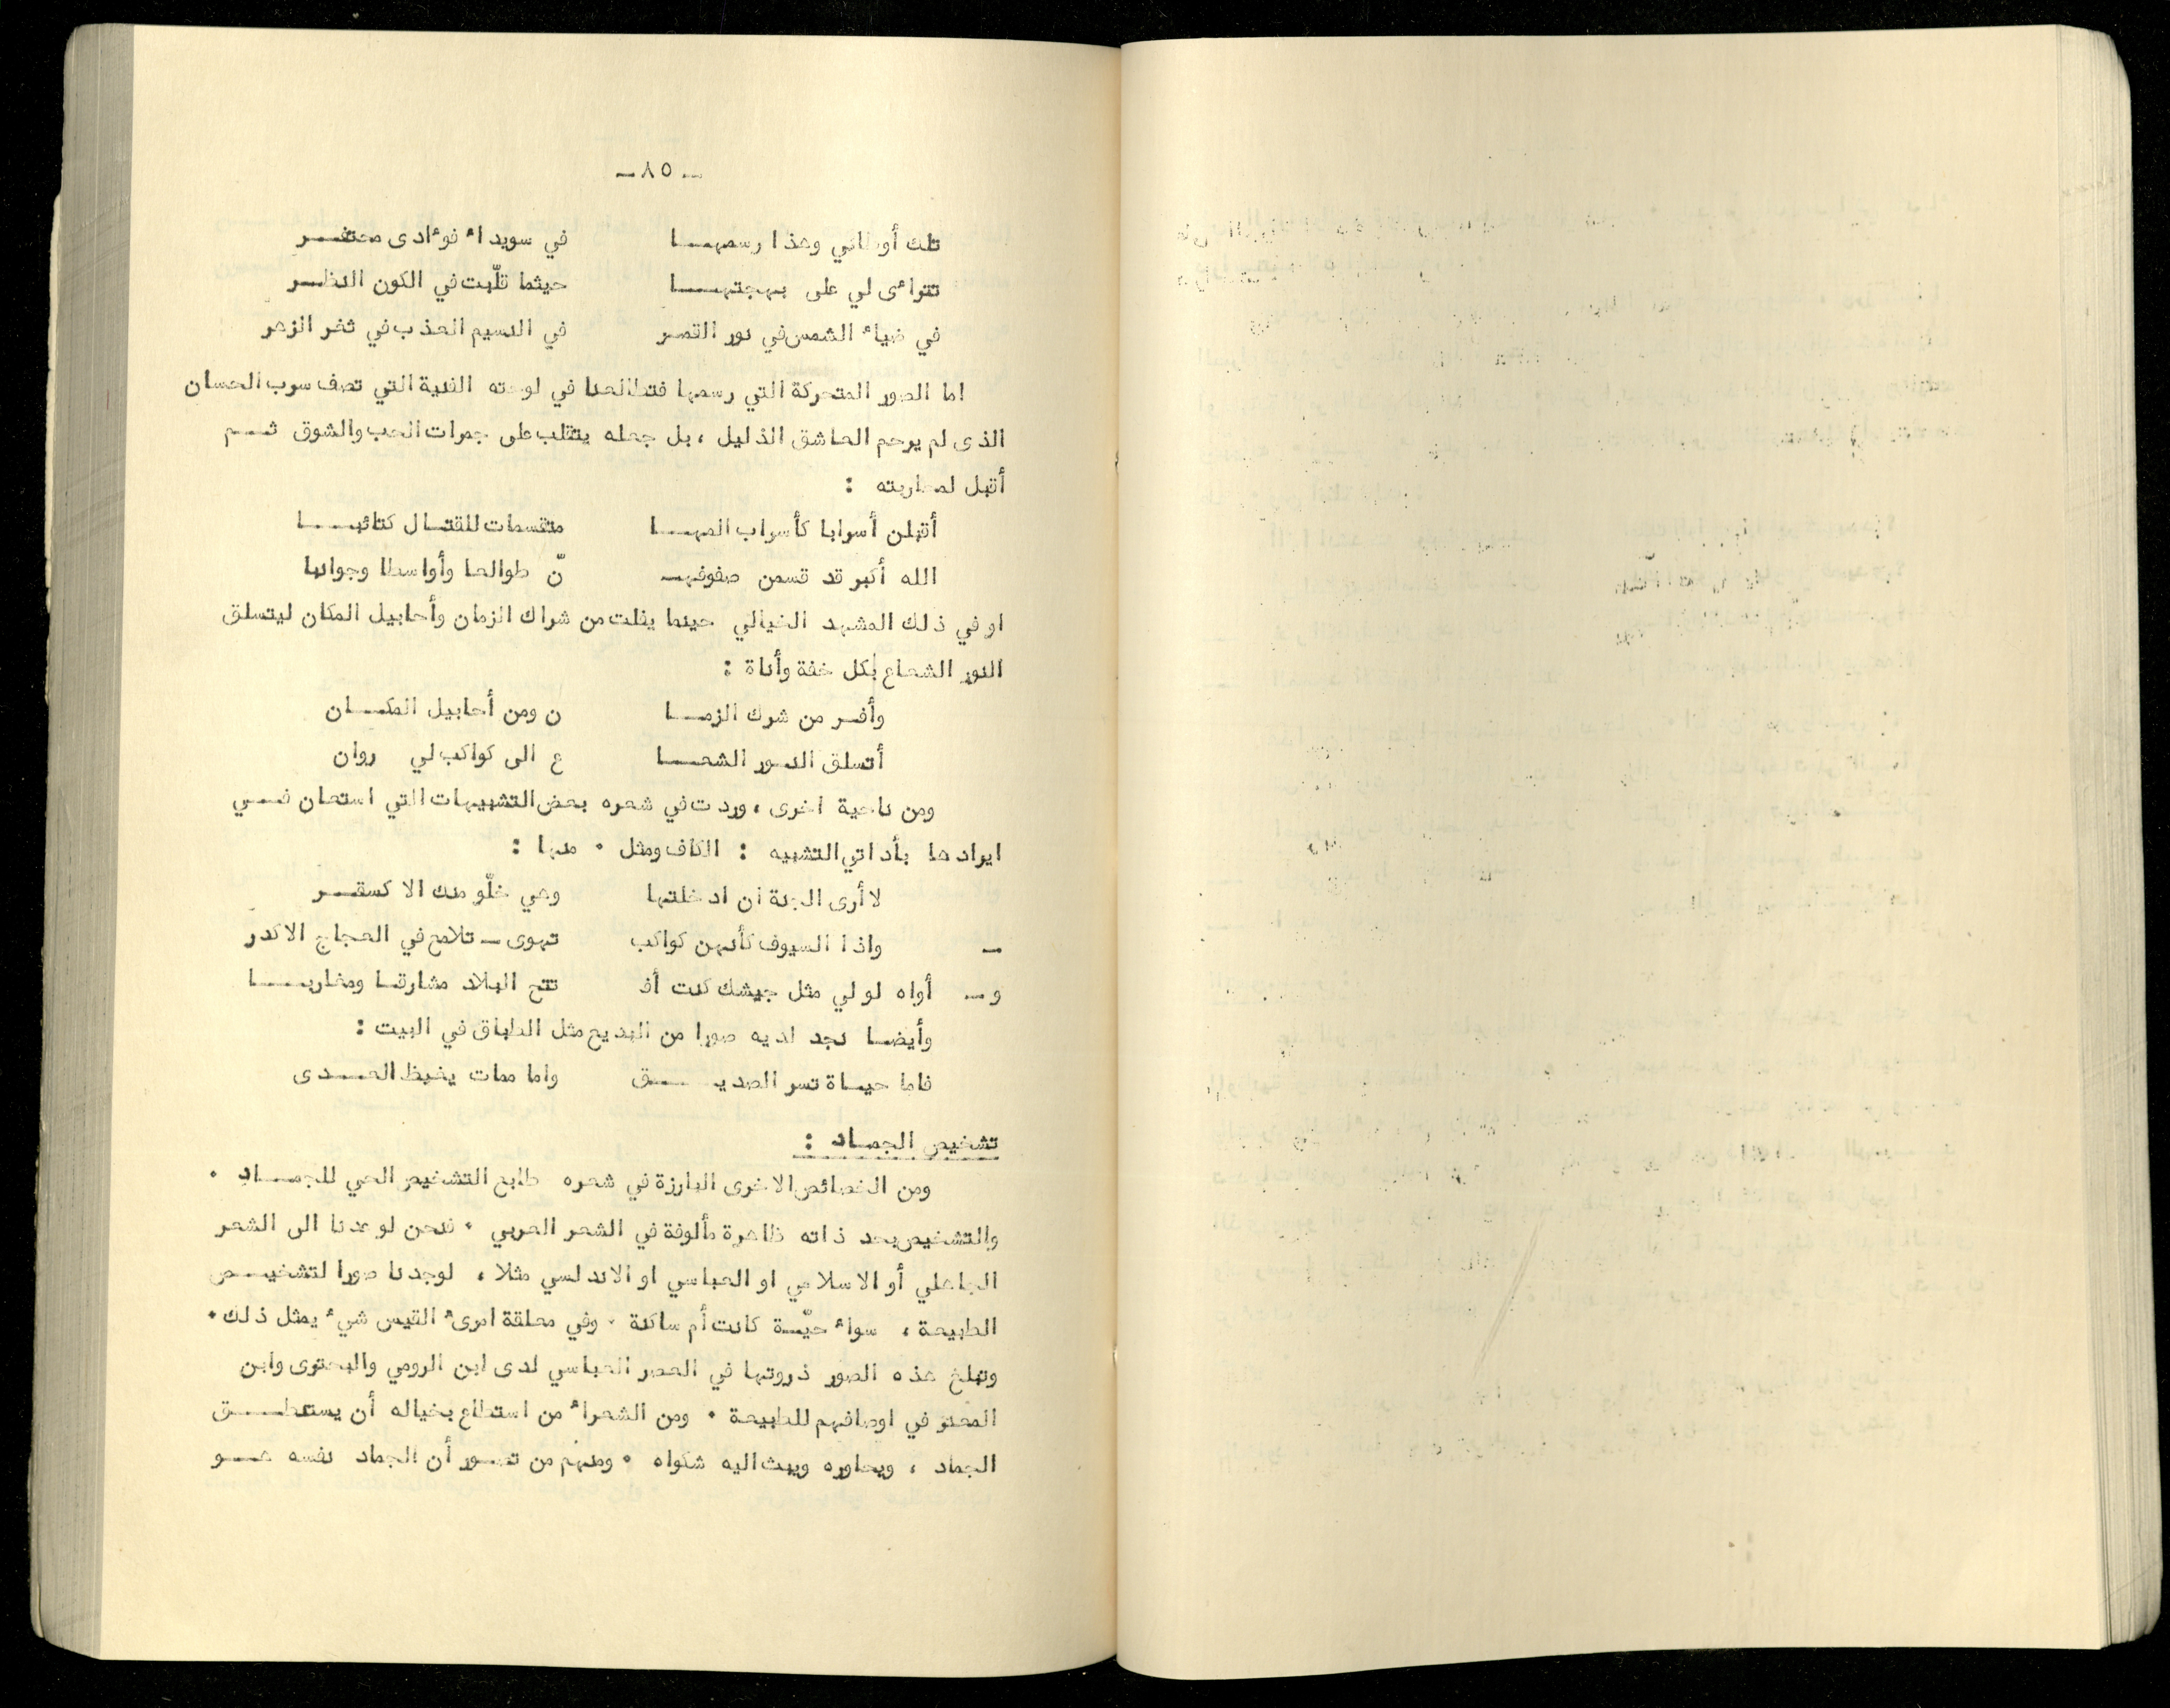 ـ ٨٥ ـ
تلك أوطاني وهذا رسمهــا في سويداء فؤادى محتفــر
تتراءى لي على بهجتهــا حيثما قلّبت في الكون النظـر
في ضياء الشمس في نور القمـر في النسيم العذب في ثغر الزهر
اما الصور المتحركة التي رسمها فتطالعنا في لوحته الفنية التي تصف سرب الحسان
الذى لم يرحم العاشق الذليل ، بل جعله يتقلب على جمرات الحب والشوق ثــم
أقبل لمحاربته :
أقبلن أسرابا كأسراب المهــا متقسمات للقتـال كتائبــا
الله أكبر قد قسمن صفوفهـ نّ طوالعا وأواسطا وجوانبا
او في ذلك المشهد الخيالي حينما يفلت من شراك الزمان وأحابيل المكان ليتسلق
النور الشعاع بكل خفة وأناة :
وأفـر من شرك الزمــا ن ومن أحابيل المكــان
أتسلق النـور الشعــا ع الى كواكب لي روان
ومن ناحية اخرى ، وردت في شعره بعض التشبيهات التي استعان فــي
ايرادها بأداتي التشبيه : الكاف ومثل ٠ منها :
لا أرى الجنة ان ادخلتها وهي خلّو منك الا كسقــر
ـ واذا السيوف كأنهن كواكب تهوى ـ تلامع في العجاج الاكدر
و ـ أواه لو لي مثل جيشك كنت أفـ تتح البلاد مشارقـا ومغاربــا
وأيضـا نجد لديه صورا من البديع مثل الطباق في البيت :
فاما حيـاة تسر الصديــق واما ممات يغيظ العــدى
تشخيص الجمـاد :
ومن الخصائص الاخرى البارزة في شعره طابع التشخيص الحي للجمــاد ٠
والتشخيص بحد ذاته ظاهرة مألوفة في الشعر العربي ٠ فنحن لو عدنا الى الشعر
الجاهلي أو الاسلامي او العباسي او الاندلسي مثلا ، لوجدنا صورا لتشخيــص
الطبيعة ، سواء حيّـة كانت أم ساكنة ٠ وفي معلقة امرىء القيس شيء يمثل ذلك ٠
وتبلغ هذه الصور ذروتها في العصر العباسي لدى ابن الرومي والبحترى وابن
المعتز في اوصافهم للطبيعة ٠ ومن الشعراء من استطاع بخياله أن يستنطــق
الجماد ، ويحاوره ويبث اليه شكواه ٠ ومنهم من تصـور أن الجماد نفسه هــو